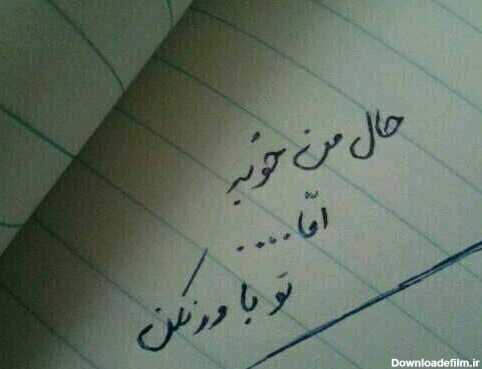 حال من خوبه
امّا....
تو باور نکن
Downloadefilm.ir